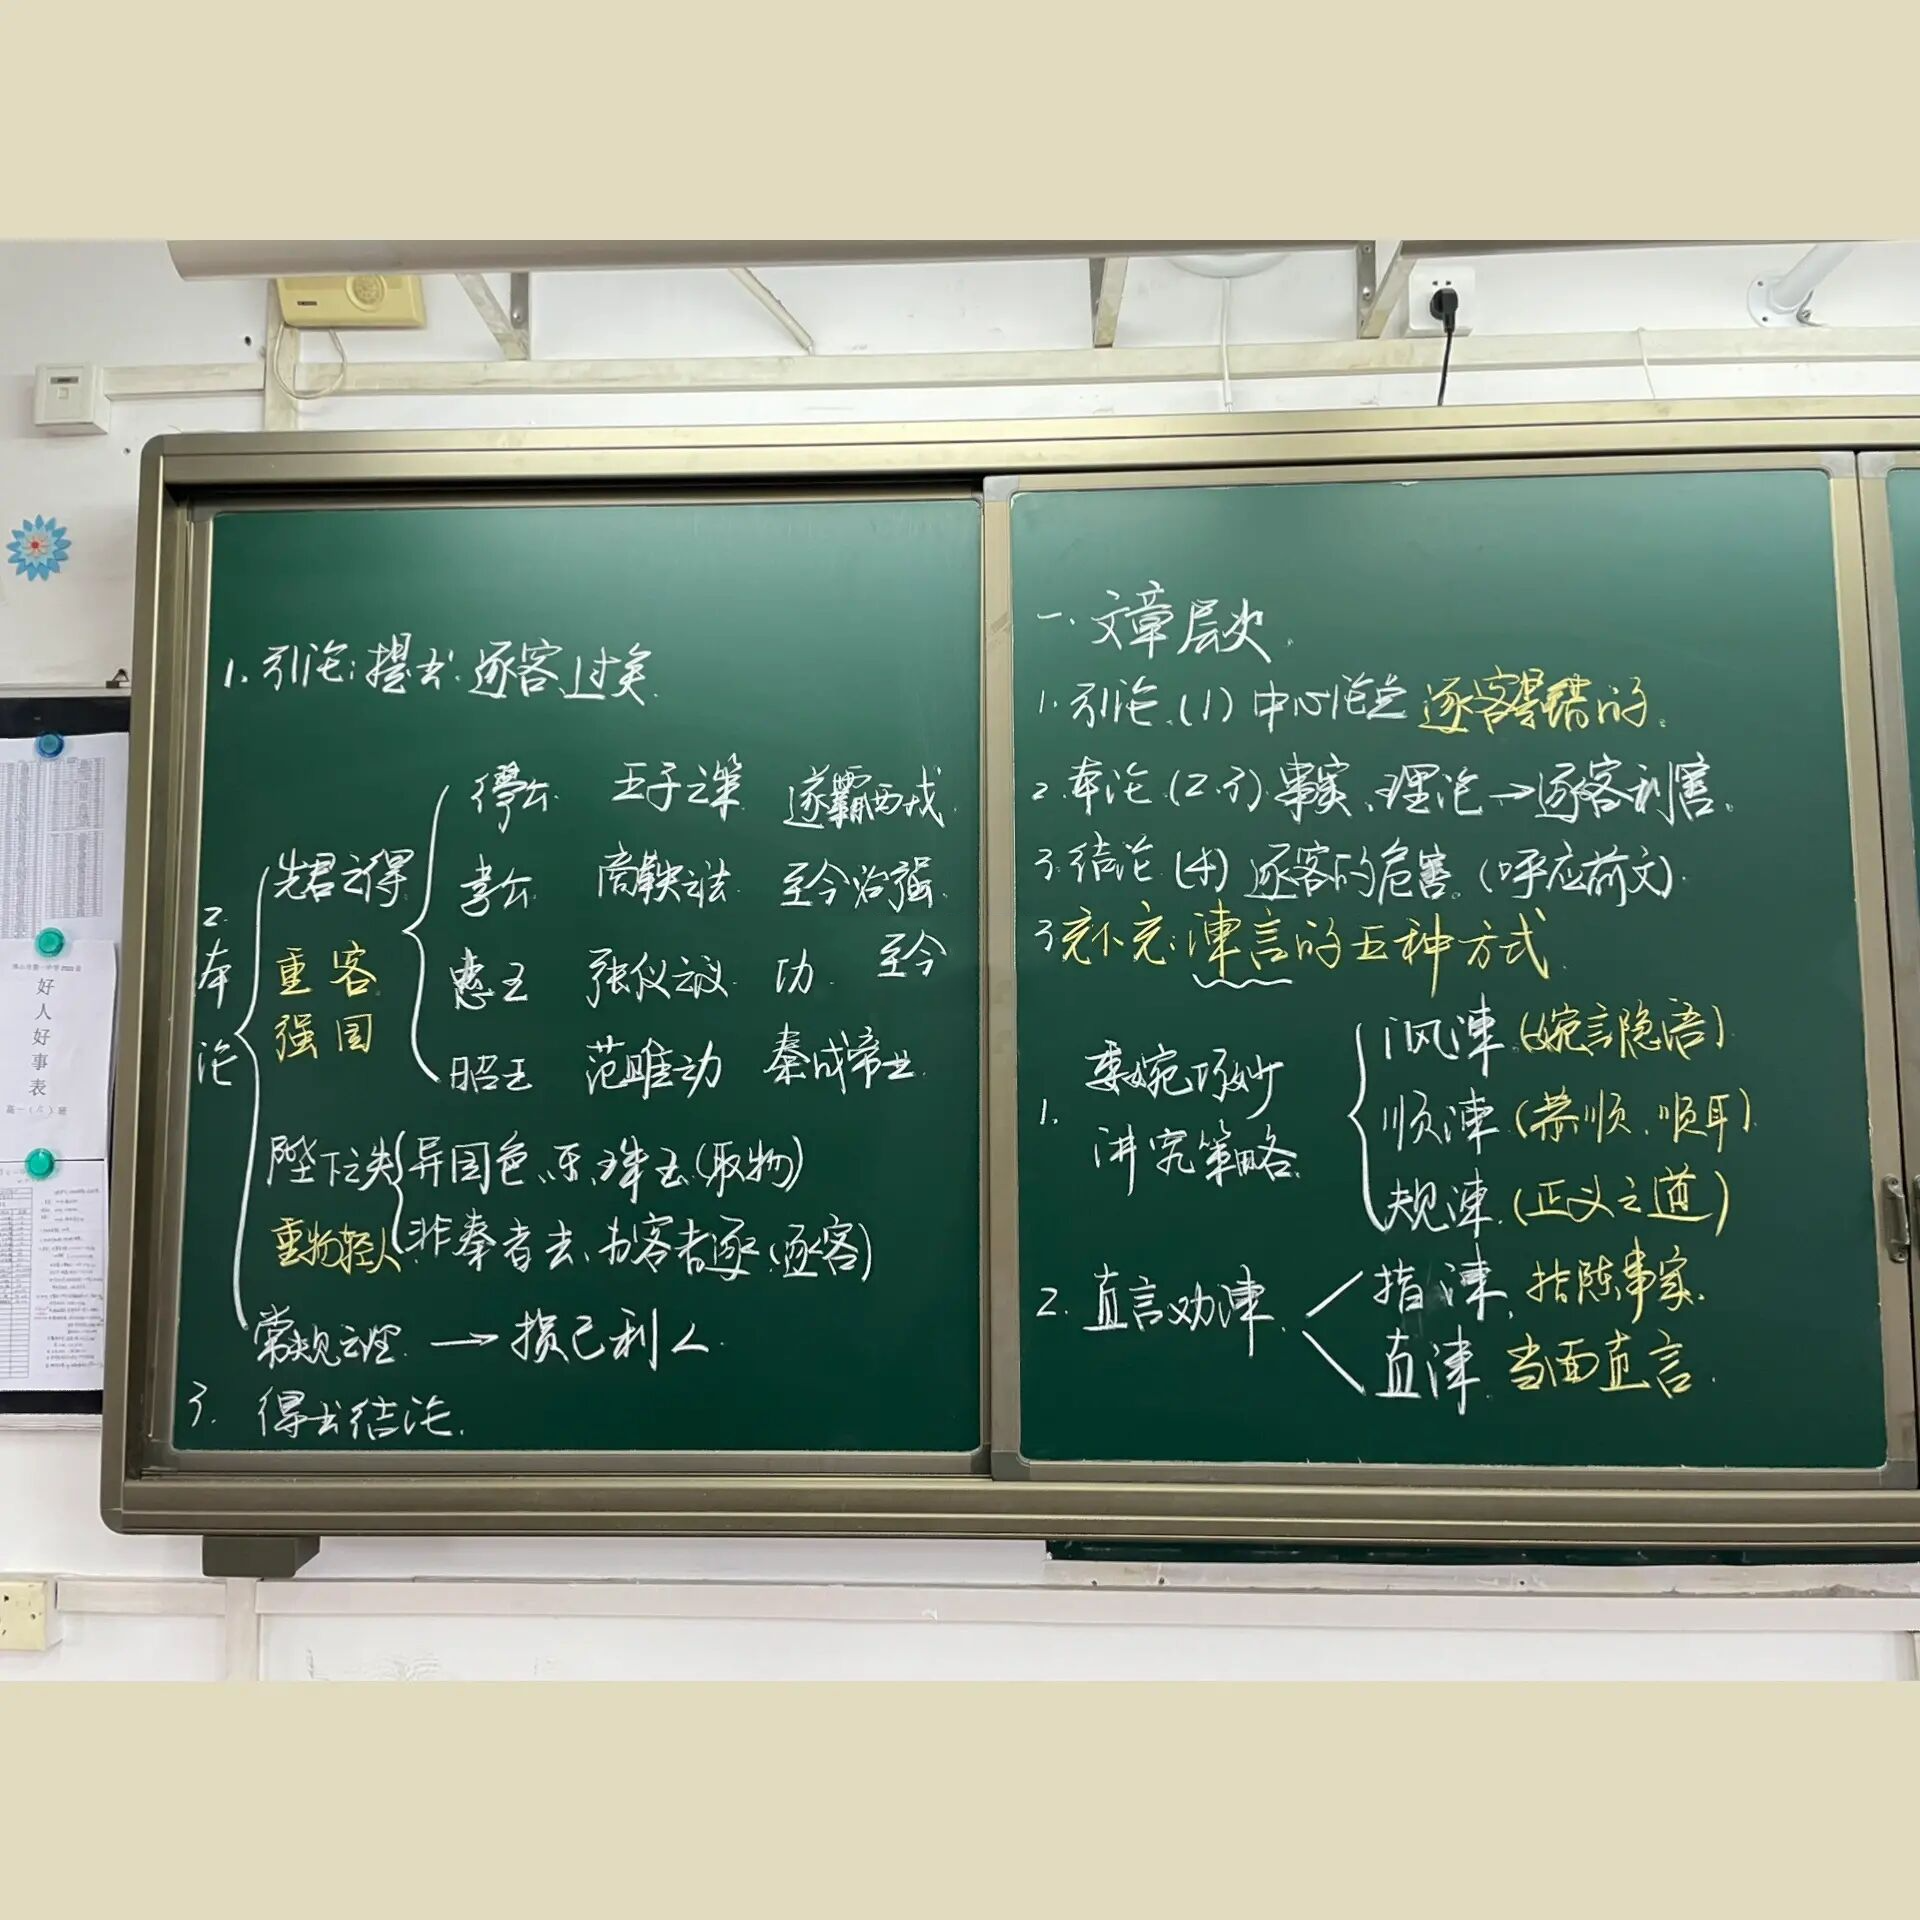 1. 引论:提出:逐客过矣.
2. 本论
先君之得
重客
强国
穆公 王子之策 遂霸西戎.
孝公 商鞅之法 至今治强.
惠王 张仪之议 功 至今
昭王 范雎功 秦成帝业.
陛下之失 异国色、乐、珠玉(取物)
重物轻人 非秦者去、为客者逐(逐客)
常规之理 → 损己利人.
3. 得出结论.
一、文章层次.
1. 引论.(1) 中心论点 逐客是错的.
2. 本论.(2.3). 事实、理论→逐客利害.
3. 结论(4) 逐客的危害.(呼应前文).
3 补充:谏言的五种方式
1. 委婉巧妙
讲究策略
讽谏(婉言隐语)
顺谏(恭顺、顺耳)
规谏.(正义之道)
2. 直言劝谏.
指谏, 指陈事实.
直谏 当面直言.
好人好事表